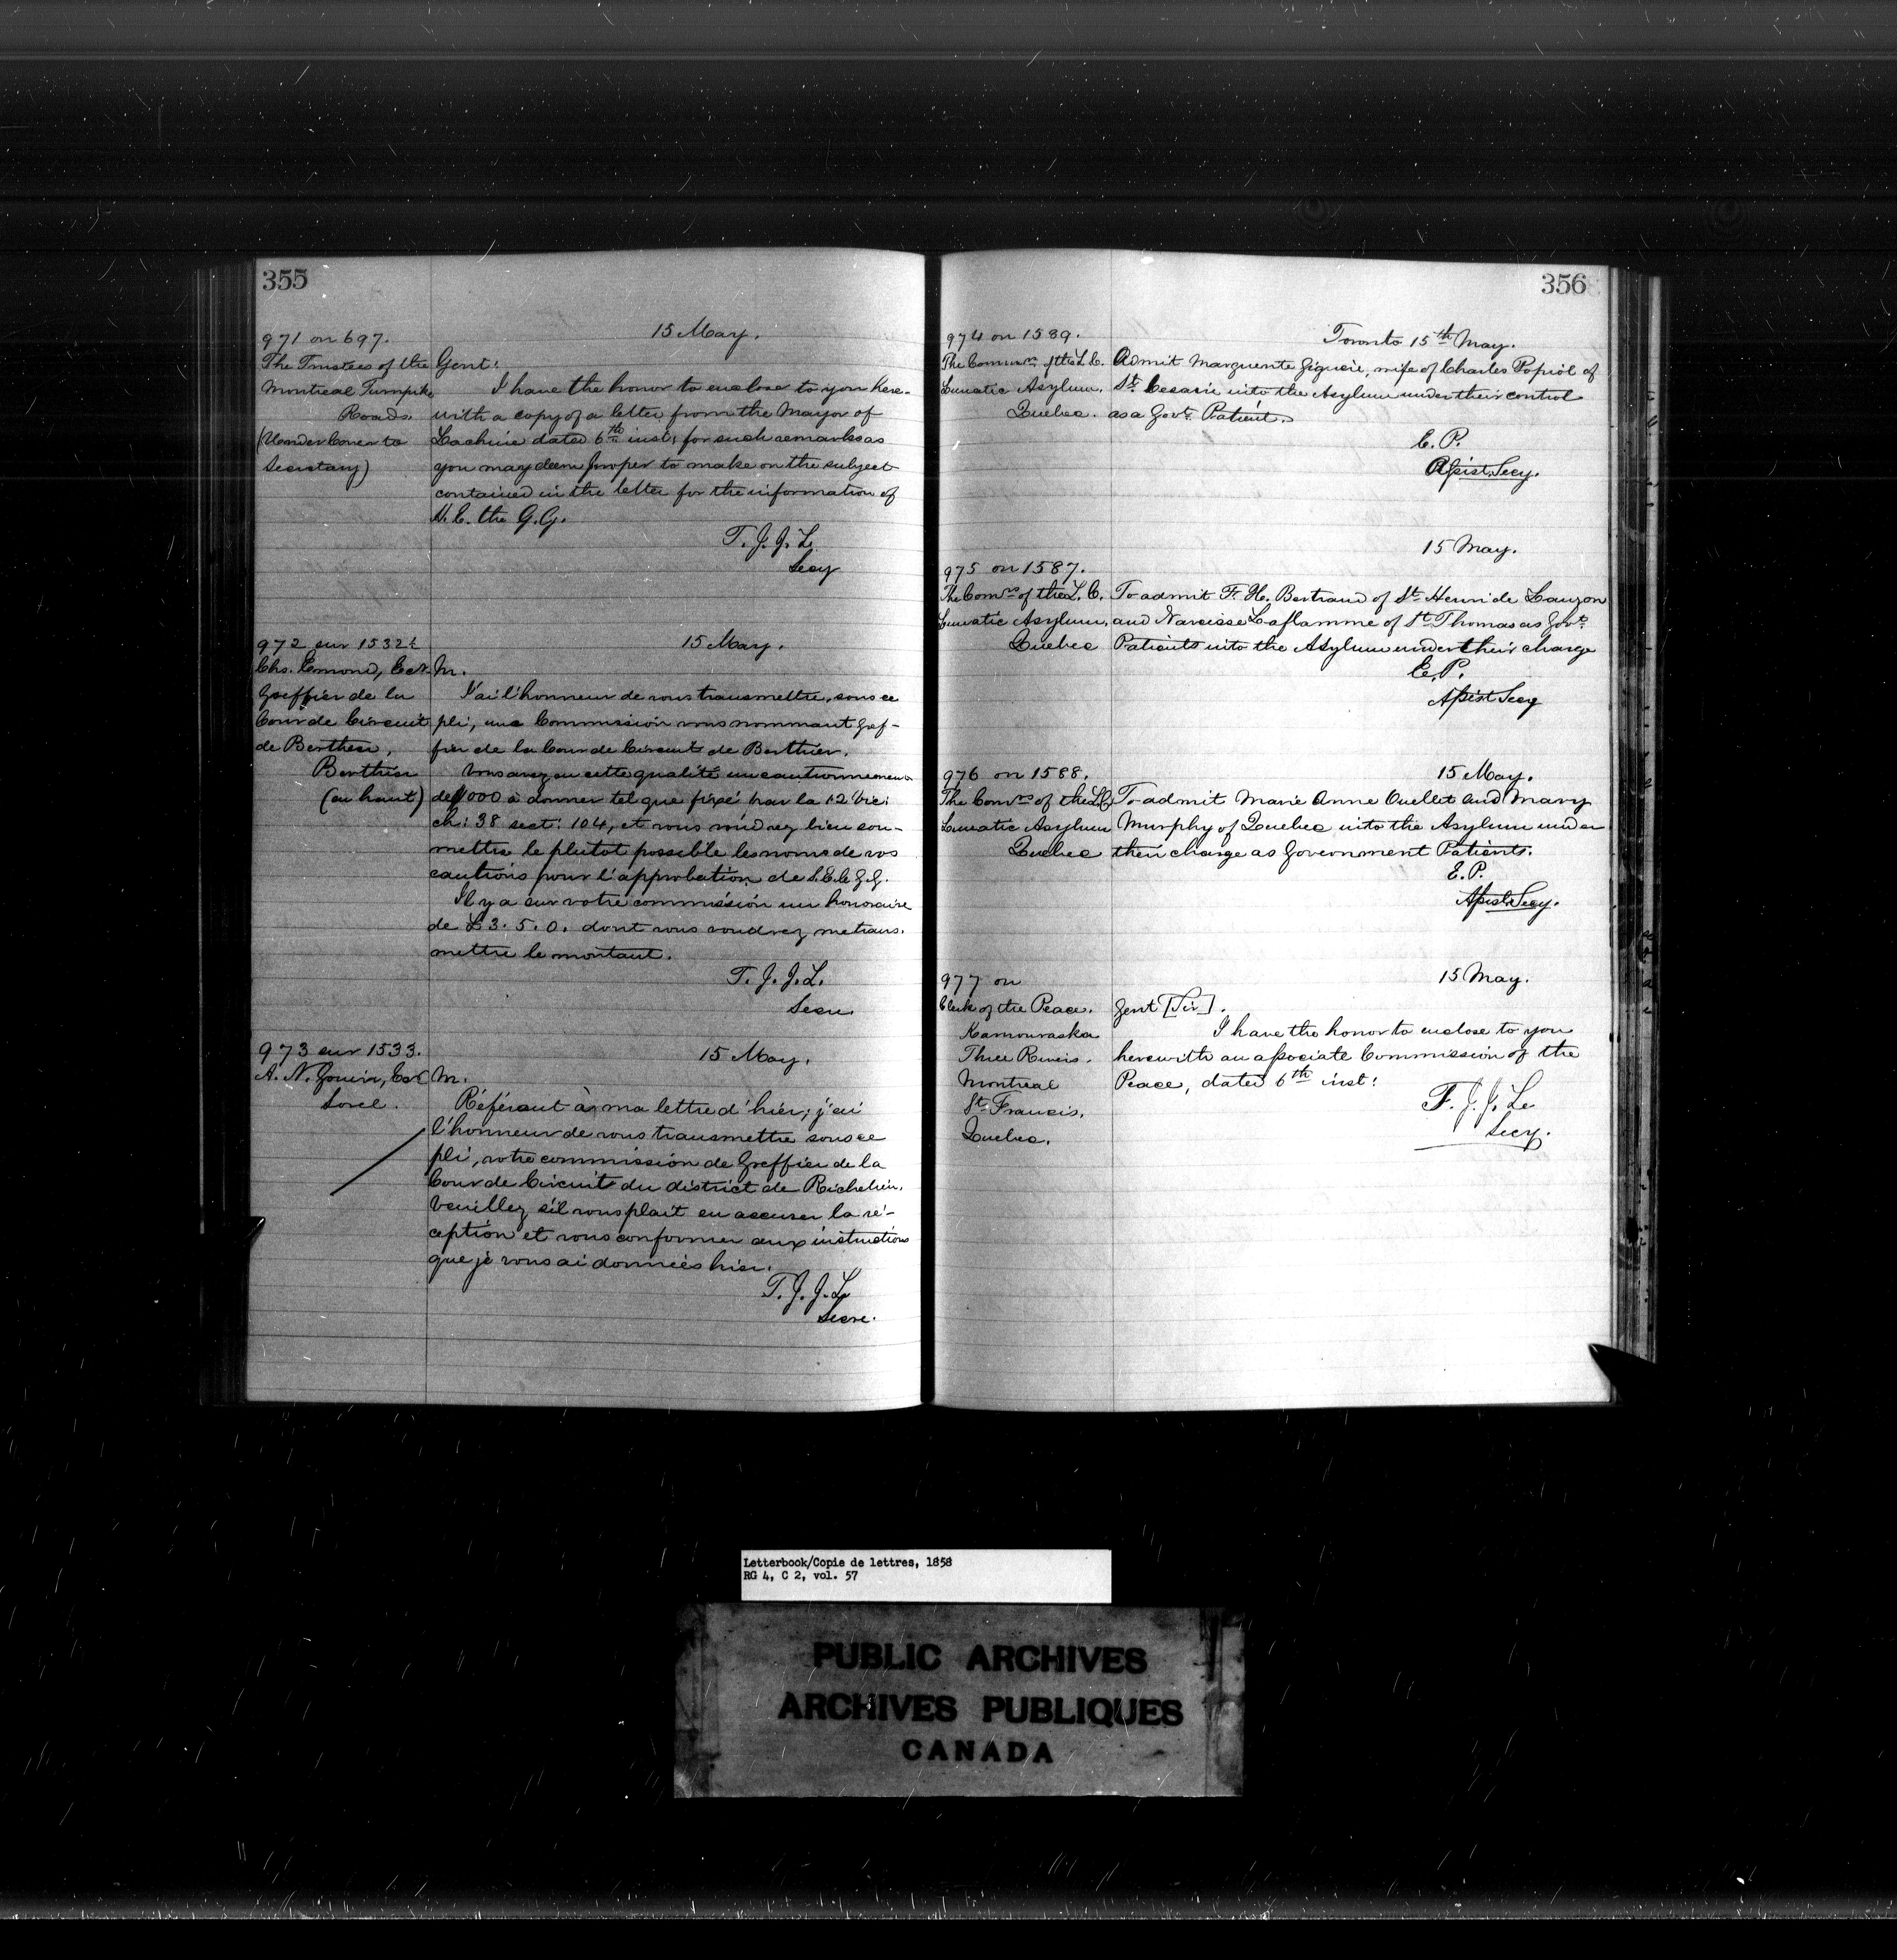 355
971 on 697.
The Trustees of the
Montreal Turnpike
Roads.
(Under Cover to
Secretary)
15 May.
Gent:
I have the honor to enclose to you here-
with a copy of a letter from the Mayor of
Lachine dated 6th inst; for such remarks as
you may deem proper to make on the subject
contained in the letter for the information of
H. E. the G. G.
T. J. J. L.
Secy
972 sur 1532½
Chs. Emond, Ecr.
Greffier de la
Cour de Circuit
de Berthier,
Berthier
(en haut)
15 May.
M.
J'ai l'honneur de vous transmettre, sous ce
pli, une Commission vous nommant Gref-
fier de la Cour de Circuit de Berthier.
Vous avez en cette qualité un cautionnement
de 1000 à donner tel que fixé par la 12 Vic:
ch: 38 sect: 104, et vous voudrez bien sou-
mettre le plutot possible les noms de vos
cautions pour l'approbation de S. E. le G. G.
Il y a sur votre commission un honoraire
de £3. 5. 0. dont vous voudrez me trans.
mettre le montant.
T. J. J. L.
Secre.
973 sur 1533.
A. N. Gouin, Ecr
Sorel.
15 May.
M.
Référant à ma lettre d'hier; j'ai
l'honneur de vous transmettre sous ce
pli, votre commission de Greffier de la
Cour de Circuit du district de Richelieu.
Veuillez s'il vous plait en accuser la ré-
ception et vous conformer aux instructions
que je vous ai données hier.
T. J. J. L.
Secre.
356
974 on 1589.
The Commrs. of the L. C.
Lunatic Asylum.
Quebec.
Toronto 15th May.
Admit Marguerite Giguère, wife of Charles Popiol of
St. Cesarie into the Asylum under their control
as a Govt. Patient.
E. P.
Assist. Secy.
975 on 1587.
The Comrs. of the L. C.
Lunatic Asylum,
Quebec
15 May.
To admit F. H. Bertrand of St. Henri de Lauzon
and Narcisse Laflamme of St. Thomas as Govt.
Patients into the Asylum under their charge
E. P.
Assist Secy
976 on 1588.
The Comrs. of the L C
Lunatic Asylum
Quebec
15 May.
To admit Marie Anne Ouellet and Mary
Murphy of Quebec into the Asylum under
their charge as Government Patients.
E. P.
Assist. Secy.
977 on
Clerk of the Peace.
Kamouraska
Three Rivers.
Montreal
St. Francis.
Quebec.
15 May.
Gent [Sir].
I have the honor to enclose to you
herewith an associate Commission of the
Peace, dated 6th inst:
T. J. J. L.
Secy.
Letterbook/Copie de lettres, 1858
RG 4, C 2, vol. 57
PUBLIC ARCHIVES
ARCHIVES PUBLIQUES
CANADA